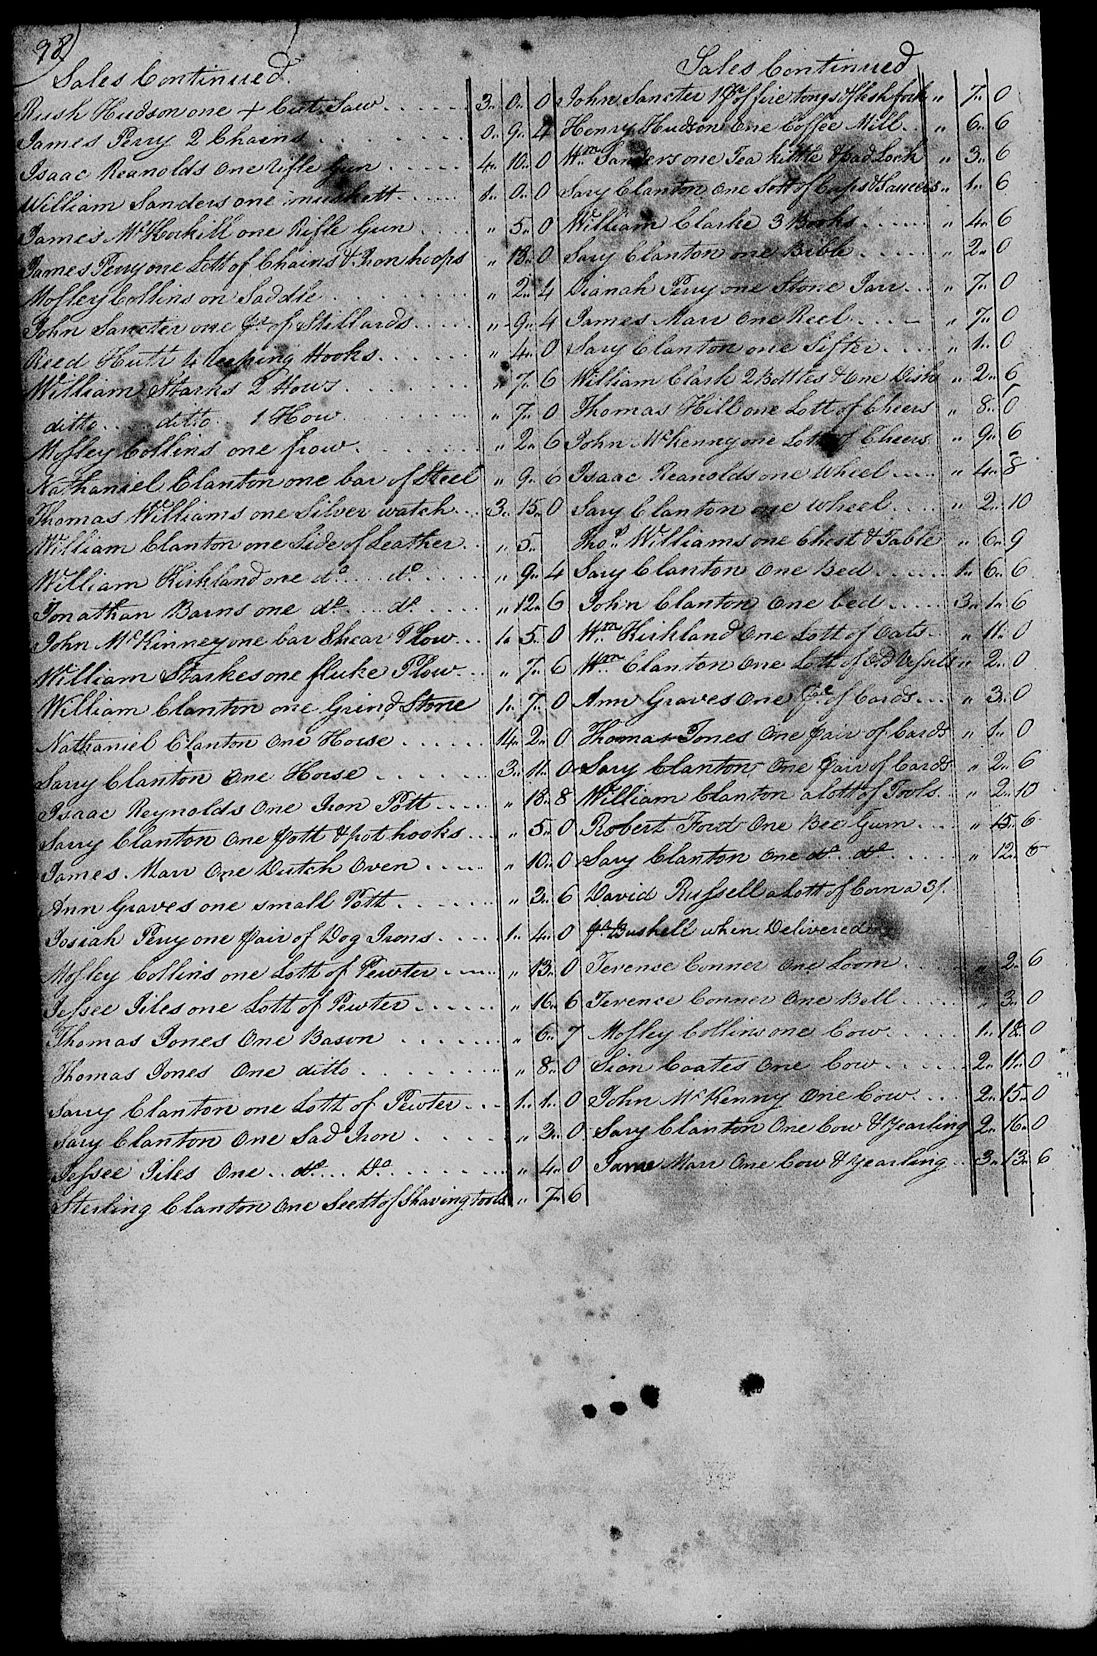 98
Sales Continued.
Rush Hudson one + Cut Saw 3 " 0 " 0
James Perry 2 Chains 0 " 9 " 4
Isaac Reanolds one rifle Gun 4 " 10 " 0
William Sanders one muskett 1 " 0 " 0
James McHockill one Rifle Gun " 5 " 0
James Perry one Lott of Chains & Iron hoops " 18 " 0
Mosley Collins on Saddle " 2 " 4
John Sancter one pr of Stillards " 9 " 4
Reed Hutt 4 Reeping Hooks " 4 " 0
William Starks 2 Hows " 7 " 6
ditto ditto 1 How " 7 " 0
Mosley Collins one frow " 2 " 6
Nathaniel Clanton one bar of Steel " 9 " 6
Thomas Williams one Silver watch 3 " 15 " 0
William Clanton one Side of Leather " 5 "
William Kirkland one do do " 9 " 4
Jonathan Barns one do do " 12 " 6
John McKinney one bar Shear Plow 1 " 5 " 0
William Starkes one fluke Plow " 7 " 6
William Clanton one Grind Stone 1 " 7 " 0
Nathaniel Clanton one Horse 14 " 2 " 0
Sarry Clanton one Horse 3 " 11 " 0
Isaac Reynolds One Iron Pott " 18 " 8
Sarry Clanton One Pott & pot hooks " 5 " 0
James Marr One Dutch Oven " 10 " 0
Ann Graves one small Pott " 3 " 6
Josiah Perry one pair of Dog Irons 1 " 4 " 0
Mosley Collins one Lott of Pewter " 13 " 0
Jessee Tiles one Lott of Pewter " 16 " 6
Thomas Jones One Bason " 6 " 7
Thomas Jones One ditto " 8 " 0
Sarry Clanton one Lott of Pewter 1 " 1 " 0
Sary Clanton One Sad Iron " 3 " 0
Jessee Tiles One do Do " 4 " 0
Sterling Clanton One Seett of Shaving tools " 7 " 6
Sales Continued
John Sancter 1 pr of fire tongs & flesh fork " 7 " 0
Henry Hudson One Coffee Mill " 6 " 6
Wm Sanders one Tea kittle & pad Lock " 3 " 6
Sary Clanton One Lott of Cups & Saucers " 1 " 6
William Clarke 3 Books " 4 " 6
Sary Clanton one Bible " 2 " 0
Dianah Perry one Stone Jarr " 7 " 0
James Marr One Reel " 7 " 0
Sary Clanton one Sifter " 1 " 0
William Clark 2 Bottles & One Dish " 2 " 6
Thomas Hill one Lott of Cheers " 8 " 0
John McKenny one Lott of Cheers " 9 " 6
Isaac Reanolds one Wheel " 4 " 8
Sary Clanton one Wheel " 2 " 10
Thos Williams one Chest & Table " 6 " 9
Sary Clanton One Bed 1 " 6 " 6
John Clanton One bed 3 " 1 " 6
Wm Kirkland One Lott of Oats " 11 " 0
Wm Clanton One Lott of Old Vessels " 2 " 0
Ann Graves One Pare of Cards " 3 " 0
Thomas Jones One pair of Cards " 1 " 0
Sary Clanton One Pair of Cards " 2 " 6
William Clanton a lott of Tools " 2 " 10
Robert Ford One Bee Gum " 15 " 6
Sary Clanton One do do " 12 " 0
David Russell a Lott of Corn a 3/.
pr Bushell when Delivered
Terence Conner One Loom " 2 " 6
Terence Conner One Bell " 3 " 0
Mosley Collins one Cow 1 " 18 " 0
Sion Coates One Cow 2 " 11 " 0
John McKenny One Cow 2 " 15 " 0
Sary Clanton One Cow & Yearling 2 " 16 " 0
Jame Marr One Cow & Yearling 3 " 13 " 6